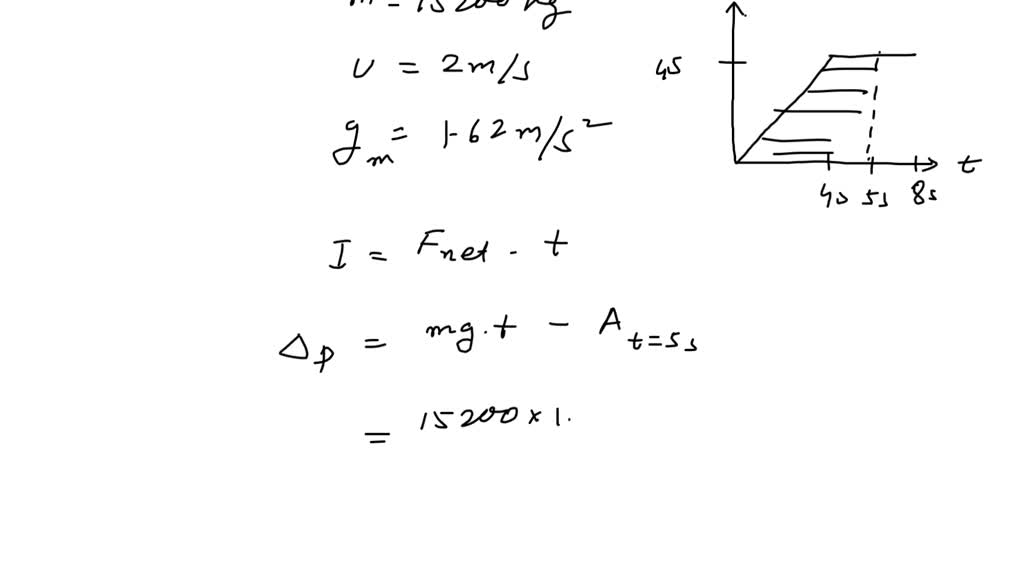 m = 15200 kg
u = 2 m/s
g_m = 1.62 m/s²
45
t
4s 5s 8s
I = F_net . t
Δp = mg.t - A_t=5s
= 15200 × 1.